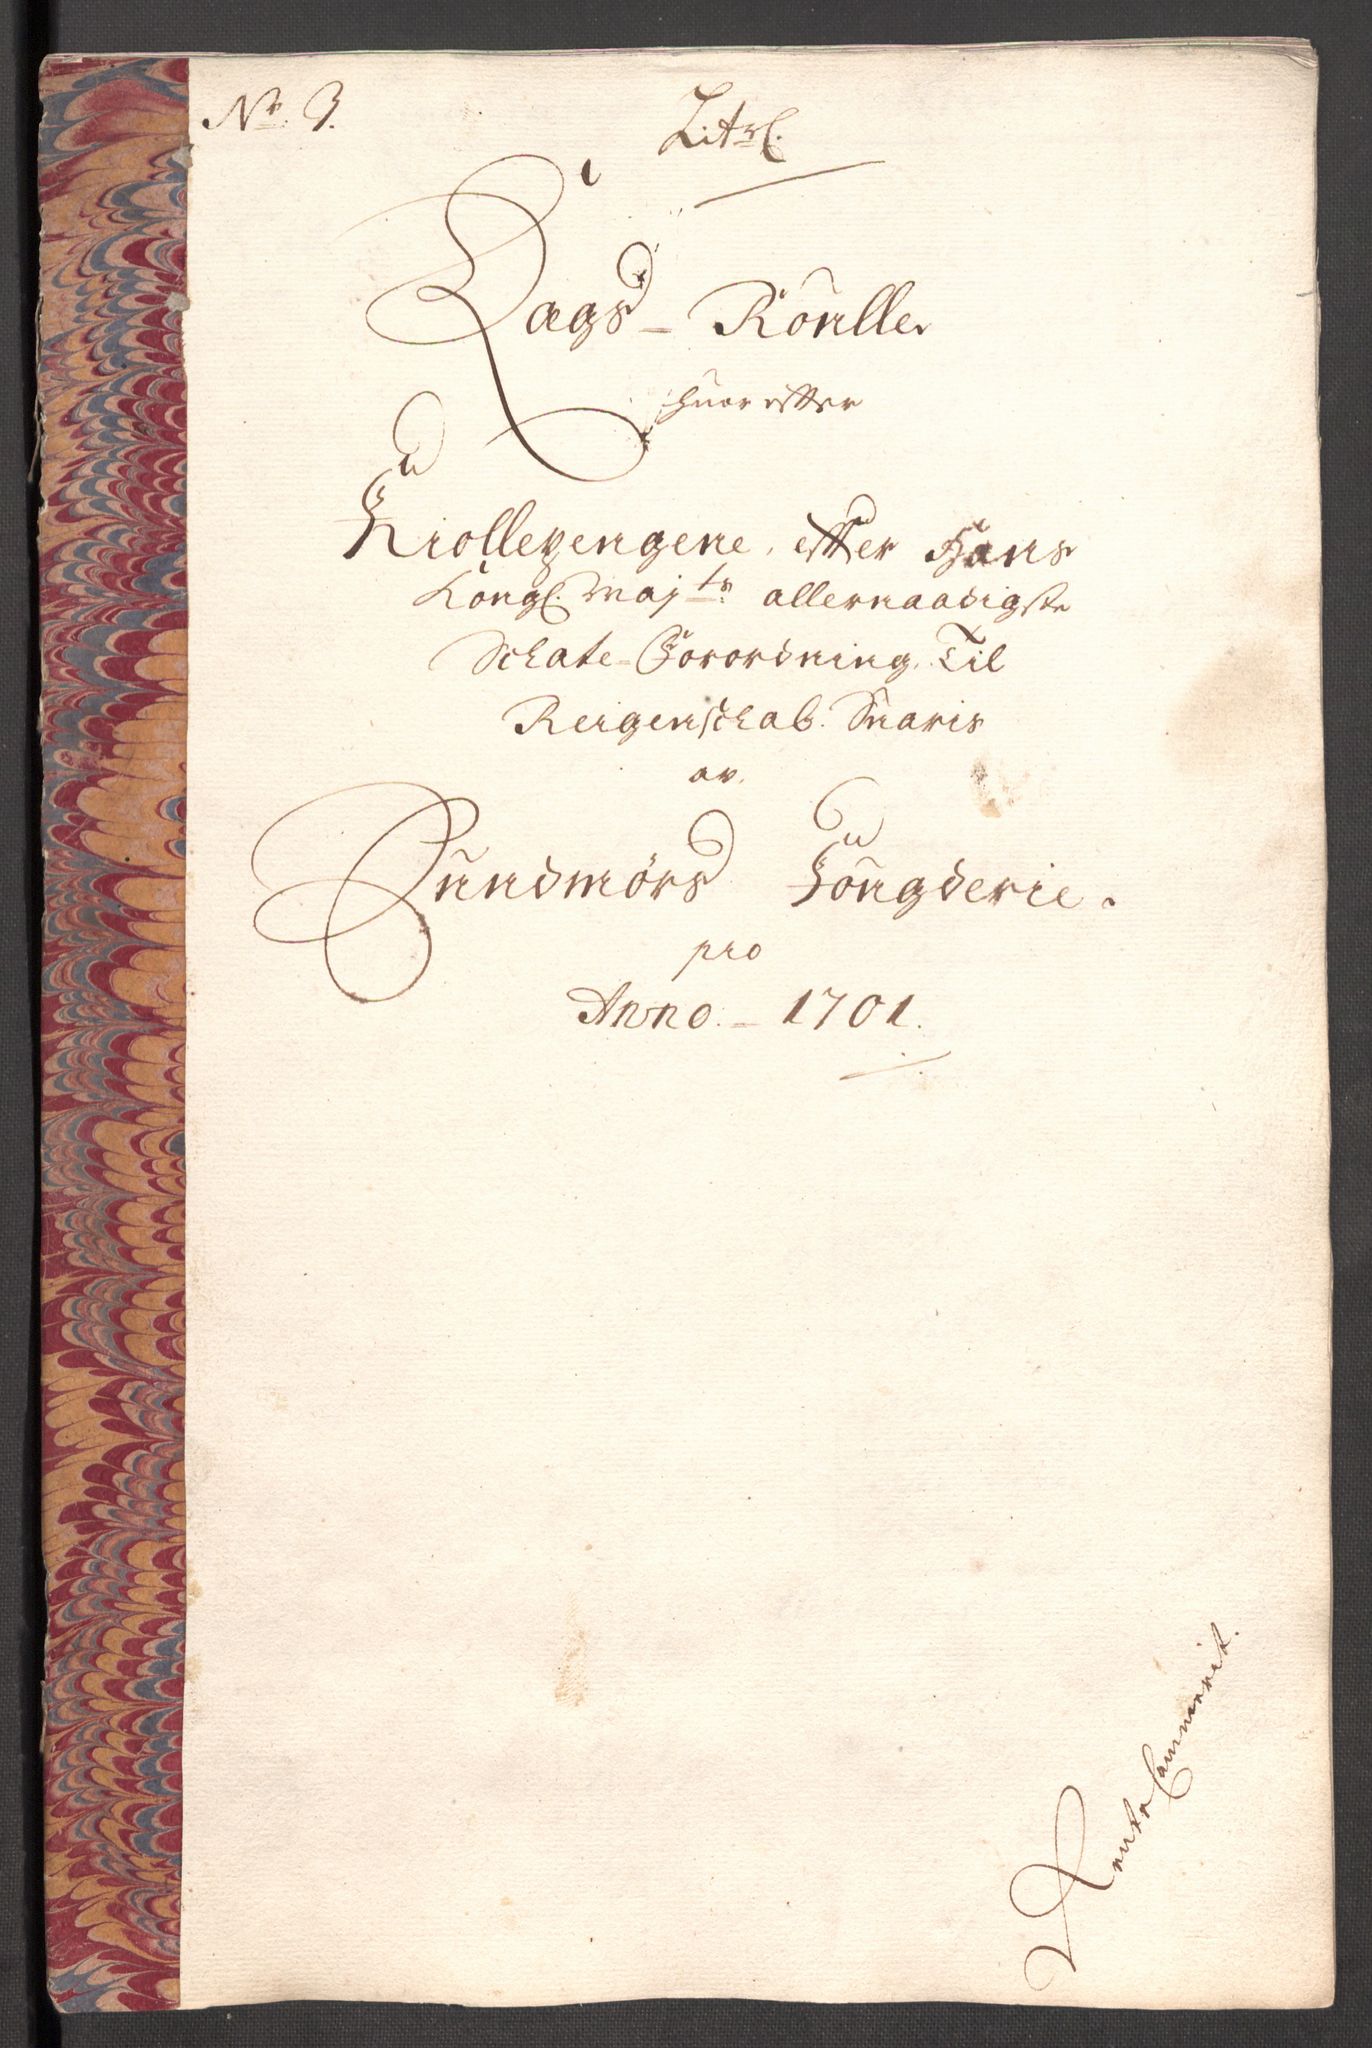 No. 3.
Lit. C.
Dags - Roulle
huor effter
Qviollepengene, effter Hans
Kongl. Maj.ts allernaadigste
Schate-Forordning Til
Reigenschab Suaris
av
Sundmörs Fougderie.
pro
Anno - 1701.
Rente Cammerit.